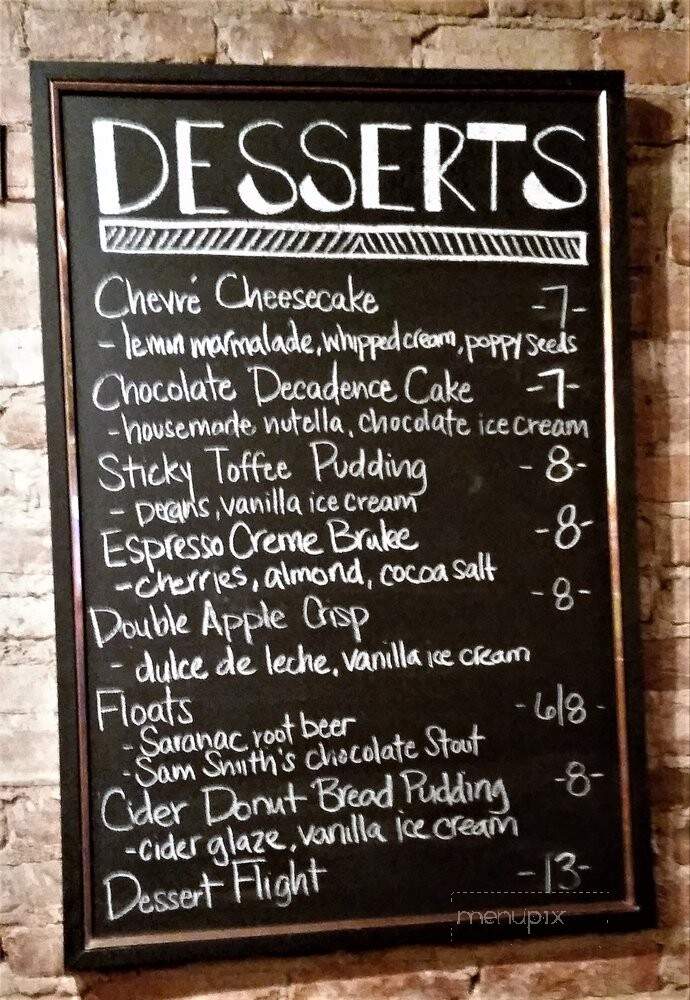 DESSERTS
Chevré Cheesecake -7-
- lemon marmalade, whipped cream, poppy seeds
Chocolate Decadence Cake -7-
- housemade nutella, chocolate ice cream
Sticky Toffee Pudding - 8-
- pecans, vanilla ice cream
Espresso Creme Brulee -8-
- cherries, almond, cocoa salt
Double Apple Crisp -8-
- dulce de leche, vanilla ice cream
Floats - 6/8 -
- Saranac root beer
- Sam Smith's chocolate Stout
Cider Donut Bread Pudding -8-
- cider glaze, vanilla ice cream
Dessert Flight -13-
menupix